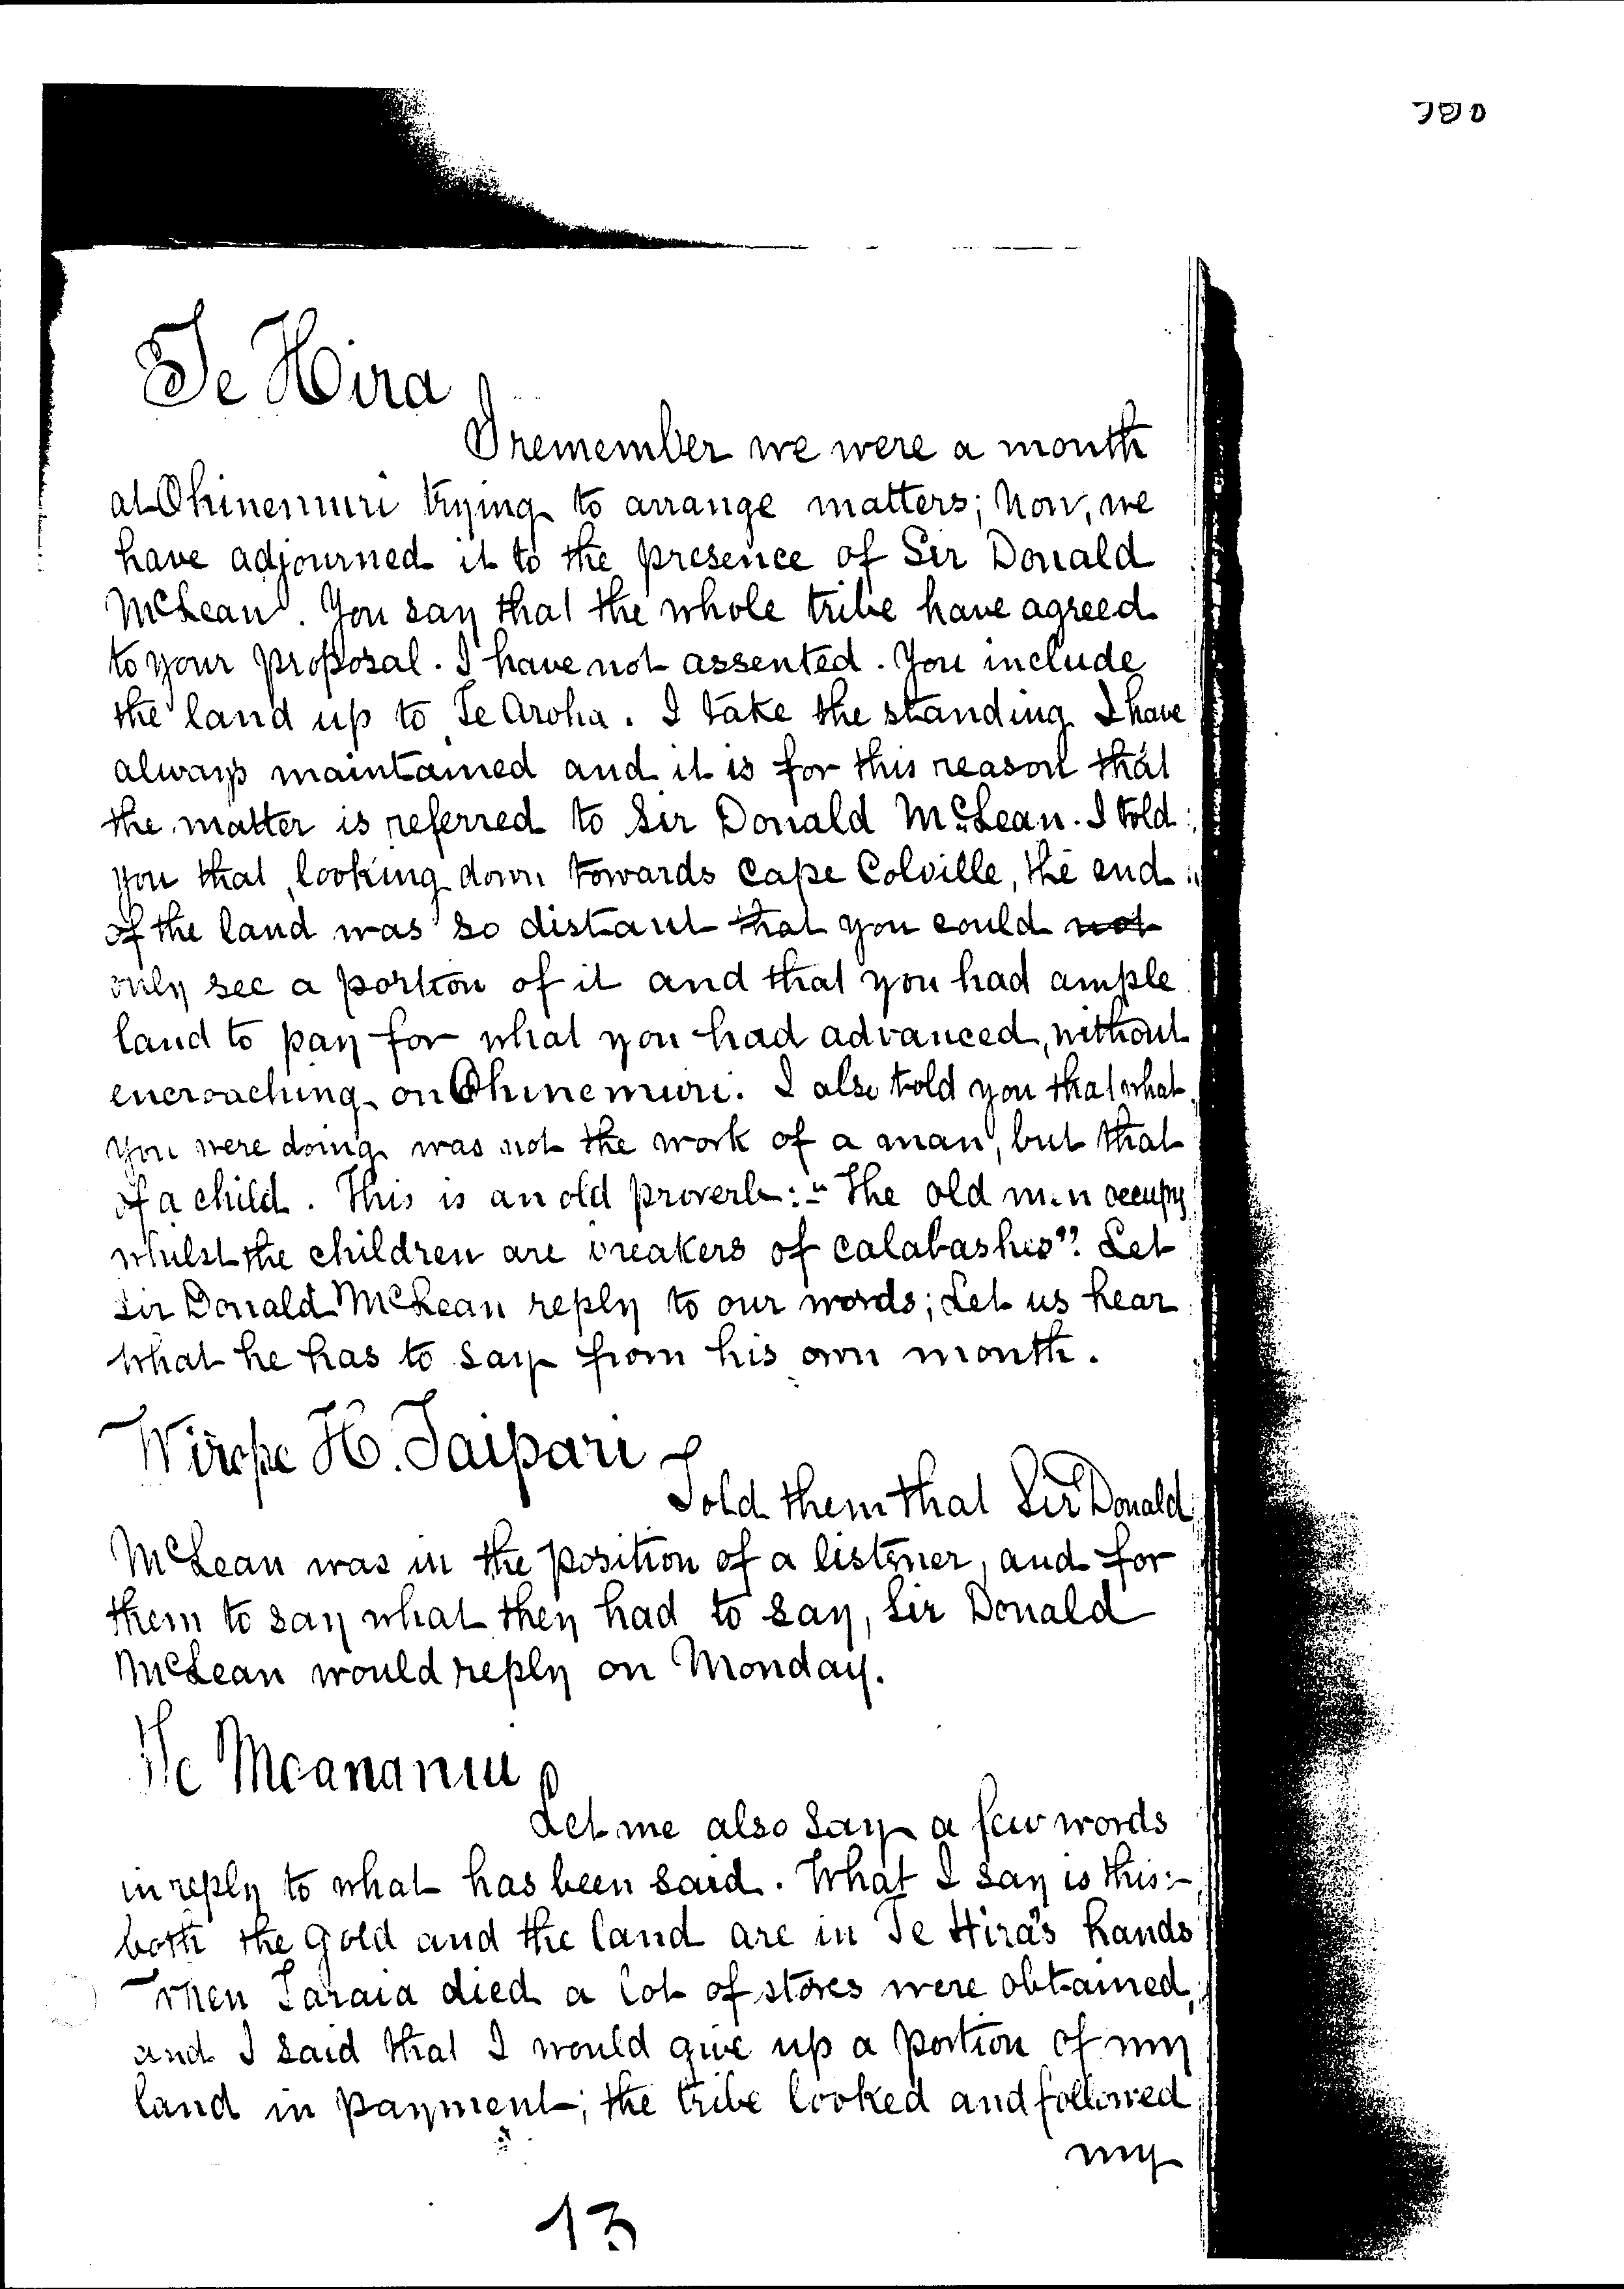 Te Hira
I remember we were a month
at Ohinemuri trying to arrange matters; Now, we
have adjourned it to the presence of Sir Donald
McLean. You say that the whole tribe have agreed
to your proposal. I have not assented. You include
the land up to Te Aroha. I take the standing I have
always maintained and it is for this reason that
the matter is referred to Sir Donald McLean. I told
you that, looking down towards Cape Colville, the end
of the land was so distant that you could not
only see a portion of it and that you had ample
land to pay for what you had advanced, without
encroaching on Ohinemuri. I also told you that what
you were doing was not the work of a man, but that
of a child. This is an old proverb:- "The old men occupy
whilst the children are breakers of calabashes". Let
Sir Donald McLean reply to our words; Let us hear
what he has to say from his own mouth.
Wirope H. Taipari
Told them that Sir Donald
McLean was in the position of a listener, and for
them to say what they had to say, Sir Donald
McLean would reply on Monday.
Te Moananui
Let me also say a few words
in reply to what has been said. What I say is this:-
both the gold and the land are in Te Hira's hands
When Taraia died a lot of stores were obtained,
and I said that I would give up a portion of my
land in payment; the tribe looked and followed
my
13